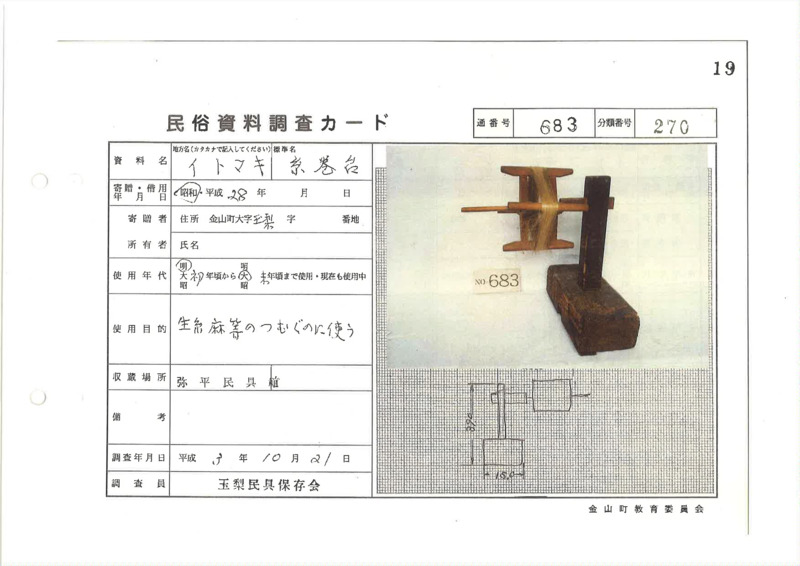 19
民俗資料調査カード
通番号 683 分類番号 270
資料名 地方名(カタカナで記入してください) 標準名
イトマキ 糸巻台
寄贈・借用年月日 昭和・平成 28年 月 日
寄贈者 住所 金山町大字玉梨 字 番地
所有者 氏名
使用年代 明 大 昭 初年頃から 明 大 昭 末年頃まで使用・現在も使用中
使用目的 生糸麻等のつむぐのに使う
収蔵場所 弥平民具館
備考
調査年月日 平成 3年 10月 21日
調査員 玉梨民具保存会
NO.683
390
15.0
金山町教育委員会